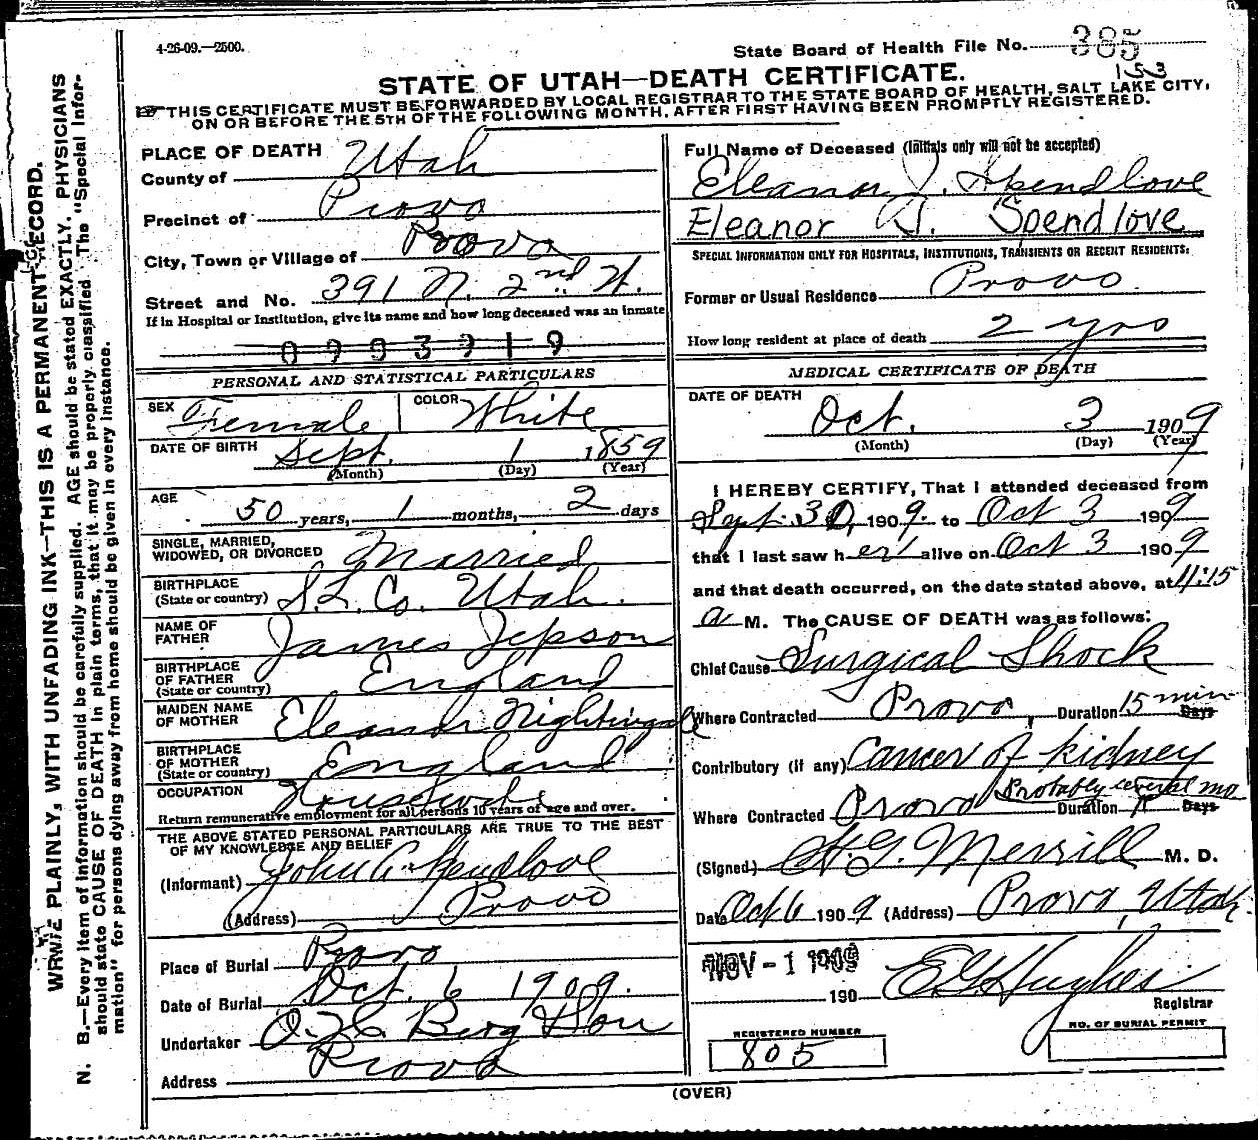 4-26-09.—2500.
State Board of Health File No. 385
153
STATE OF UTAH—DEATH CERTIFICATE.
THIS CERTIFICATE MUST BE FORWARDED BY LOCAL REGISTRAR TO THE STATE BOARD OF HEALTH, SALT LAKE CITY,
ON OR BEFORE THE 5TH OF THE FOLLOWING MONTH, AFTER FIRST HAVING BEEN PROMPTLY REGISTERED.
WRITE PLAINLY, WITH UNFADING INK—THIS IS A PERMANENT RECORD.
N. B.—Every item of information should be carefully supplied. AGE should be stated EXACTLY. PHYSICIANS
should state CAUSE OF DEATH in plain terms, that it may be properly classified. The "Special Infor-
mation" for persons dying away from home should be given in every instance.
PLACE OF DEATH
County of Utah
Precinct of Provo
City, Town or Village of Provo
Street and No. 391 N. 2nd W.
If in Hospital or Institution, give its name and how long deceased was an inmate
0903919
PERSONAL AND STATISTICAL PARTICULARS
SEX Female COLOR White
DATE OF BIRTH Sept. 1 1859
(Month) (Day) (Year)
AGE
50 years, 1 months, 2 days
SINGLE, MARRIED,
WIDOWED, OR DIVORCED Married
BIRTHPLACE
(State or country) S.L. Co. Utah.
NAME OF
FATHER James Jepson
BIRTHPLACE
OF FATHER
(State or country) England
MAIDEN NAME
OF MOTHER Eleanor Nightingale
BIRTHPLACE
OF MOTHER
(State or country) England
OCCUPATION Housewife
Return remunerative employment for all persons 10 years of age and over.
THE ABOVE STATED PERSONAL PARTICULARS ARE TRUE TO THE BEST
OF MY KNOWLEDGE AND BELIEF
(Informant) John A. Spendlove
(Address) Provo
Place of Burial Provo
Date of Burial Oct. 6 1909.
Undertaker O.H. Berg & Son
Address Provo
Full Name of Deceased (Initials only will not be accepted)
Eleanor J. Spendlove
Eleanor J. Spendlove
SPECIAL INFORMATION ONLY FOR HOSPITALS, INSTITUTIONS, TRANSIENTS OR RECENT RESIDENTS:
Former or Usual Residence Provo.
How long resident at place of death 2 yrs
MEDICAL CERTIFICATE OF DEATH
DATE OF DEATH
Oct. 3 1909
(Month) (Day) (Year)
I HEREBY CERTIFY, That I attended deceased from
Sept. 30, 1909. to Oct 3 1909
that I last saw her alive on Oct 3 1909
and that death occurred, on the date stated above, at 11:15
a M. The CAUSE OF DEATH was as follows:
Chief Cause Surgical Shock
Where Contracted Provo, Duration 15 min Days
Contributory (if any) Cancer of kidney
Probably several mo
Where Contracted Provo Duration Days
(Signed) H.G. Merrill M. D.
Date Oct 6 1909 (Address) Provo, Utah
NOV - 1 1909
190 E.G. Hughes
Registrar
REGISTERED NUMBER
805
NO. OF BURIAL PERMIT
(OVER)